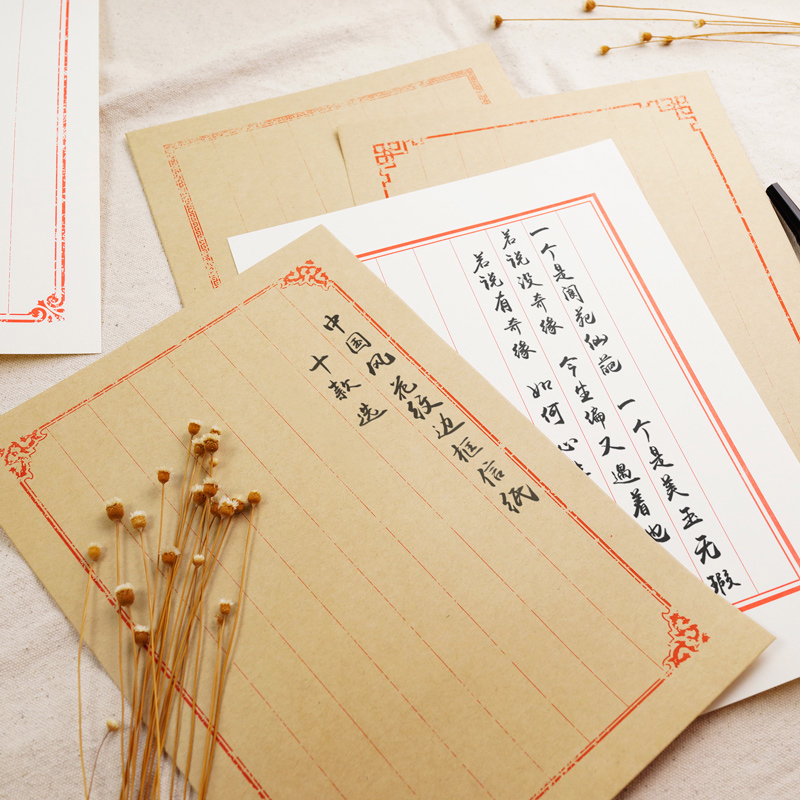 中国风花纹边框信纸
十款选
一个是阆苑仙葩 一个是美玉无瑕
若说没奇缘 今生偏又遇着他
若说有奇缘 如何心